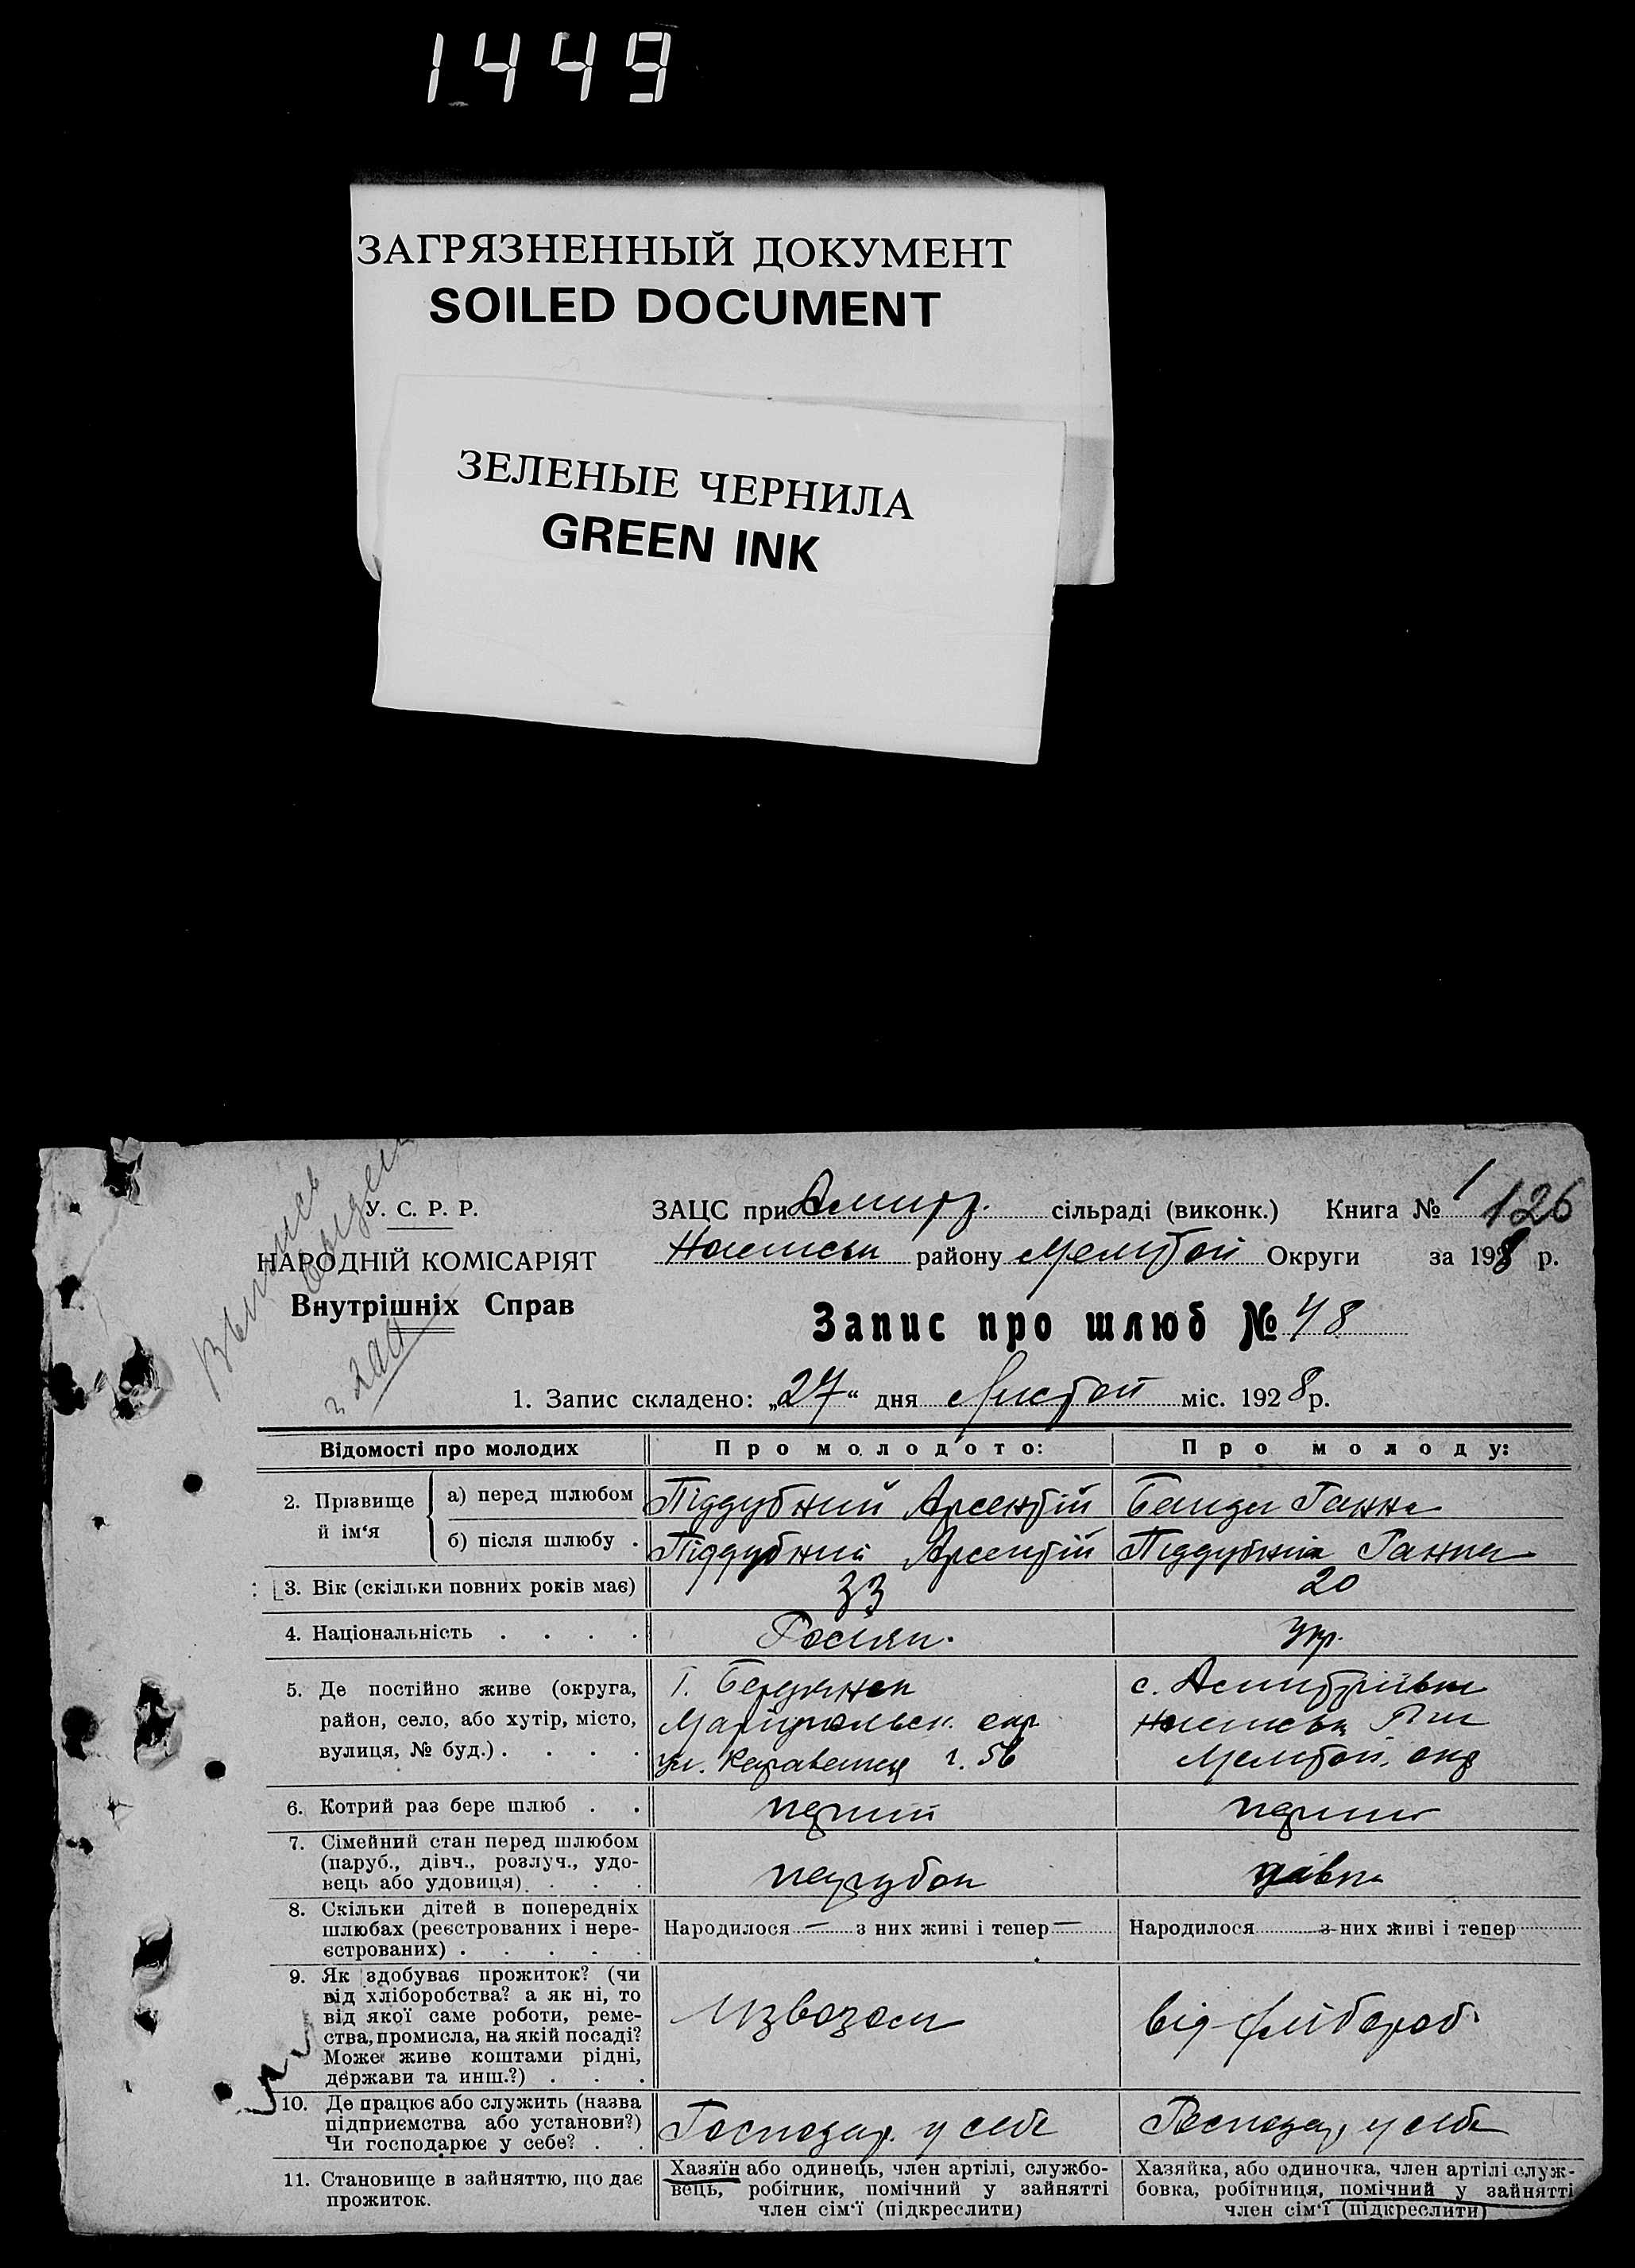 1449
ЗАГРЯЗНЕННЫЙ ДОКУМЕНТ
SOILED DOCUMENT
ЗЕЛЕНЫЕ ЧЕРНИЛА
GREEN INK
У. С. Р. Р.
НАРОДНІЙ КОМІСАРІЯТ
Внутрішніх Справ
ЗАЦС при сільраді (виконк.) Книга № 1 126
району Округи за 1928 р.
Запис про шлюб № 48
1. Запис складено: „27“ дня міс. 1928 р.
Відомості про молодих Про молодого: Про молоду:
2. Прізвище й ім‘я а) перед шлюбом Піддубний Арсентій Ганна
б) після шлюбу . Піддубний Арсентій Піддубная Ганна
3. Вік (скільки повних років має) 33 20
4. Національність . . . . Росіян. Укр.
5. Де постійно живе (округа, район, село, або хутір, місто, вулиця, № буд.) . . . .
Г. Бердянск
Маріупольск. окр
ул. 56
с.
окр
6. Котрий раз бере шлюб . . перший
7. Сімейний стан перед шлюбом (паруб., дівч., розлуч., удовець або удовиця) . . . парубок дівка
8. Скільки дітей в попередніх шлюбах (реєстрованих і нереєстрованих) . . . . .
Народилося — з них живі і тепер — Народилося з них живі і тепер
9. Як здобуває прожиток? (чи від хліборобства? а як ні, то від якої саме роботи, ремества, промисла, на якій посаді? Може живе коштами рідні, держави та инш.?) . . .
Извозом від хлібороб.
10. Де працює або служить (назва підприємства або установи?) Чи господарює у себе? . .
Господар. у себе Господар, у себе
11. Становище в зайняттю, що дає прожиток.
Хазяїн або одинець, член артілі, службовець, робітник, помічний у зайнятті член сім‘ї (підкреслити)
Хазяйка, або одиночка, член артілі службовка, робітниця, помічний у зайнятті член сім‘ї (підкреслити)